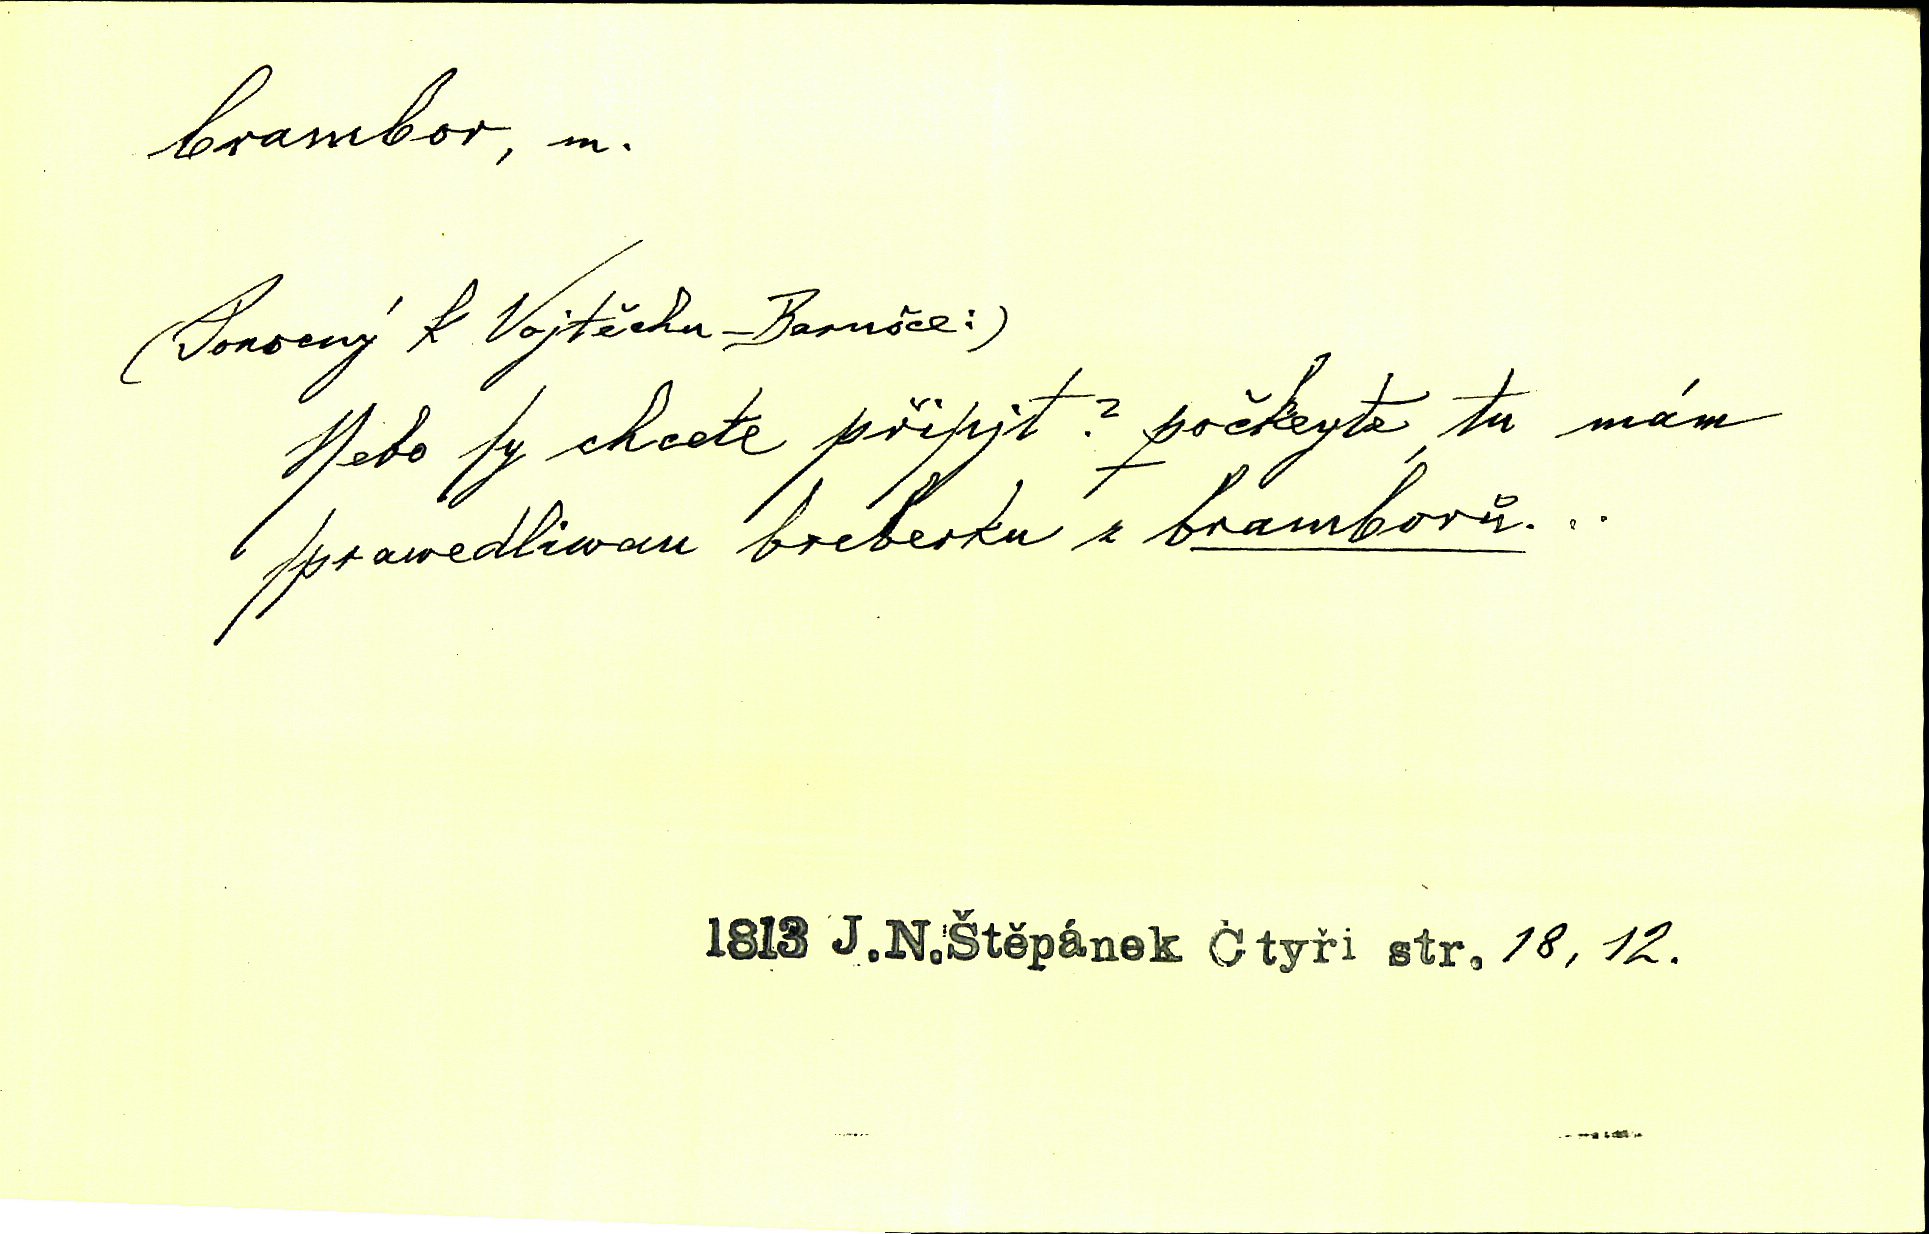 brambor, m.
(Ponocný k Vojtěchu-Barušce:)
Nebo sy chcete připjt? počkeyte, tu mám
sprawedliwau breberku z bramborů...
1813 J.N.Štěpánek Čtyři str. 18, 12.